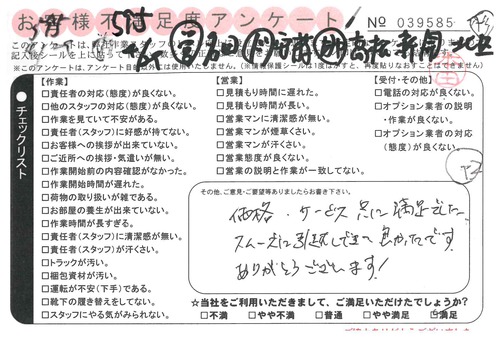 お客様不満足度アンケート
No 039585
【作業】
□責任者の対応(態度)が良くない。
□他のスタッフの対応(態度)が良くない。
□作業を見ていて不安がある。
□責任者(スタッフ)に好感が持てない。
□お客様への挨拶が出来ていない。
□ご近所への挨拶・気遣いが無い。
□作業開始前の内容確認がなかった。
□作業開始時間が遅れた。
□荷物の取り扱いが雑である。
□お部屋の養生が出来ていない。
□作業時間が長すぎる。
□責任者(スタッフ)に清潔感が無い。
□責任者(スタッフ)が汗くさい。
□トラックが汚い。
□梱包資材が汚い。
□運転が不安(下手)である。
□靴下の履き替えをしてない。
□スタッフにやる気がみられない。
【営業】
□見積もり時間に遅れた。
□見積もり時間が長い。
□営業マンに清潔感が無い。
□営業マンが煙草くさい。
□営業マンが汗くさい。
□営業態度が良くない。
□営業の説明と作業が一致してない。
【受付・その他】
□電話の対応が良くない。
□オプション業者の説明
・作業が良くない。
□オプション業者の対応
(態度)が良くない。
チェックリスト
その他、ご意見・ご要望等ありましたらお書き下さい。
価格・サービス共に満足でした。
スムーズに引越しできて良かったです。
ありがとうございます!
☆当社をご利用いただきまして、ご満足いただけたでしょうか?
□不満 □やや不満 □普通 □やや満足 □満足